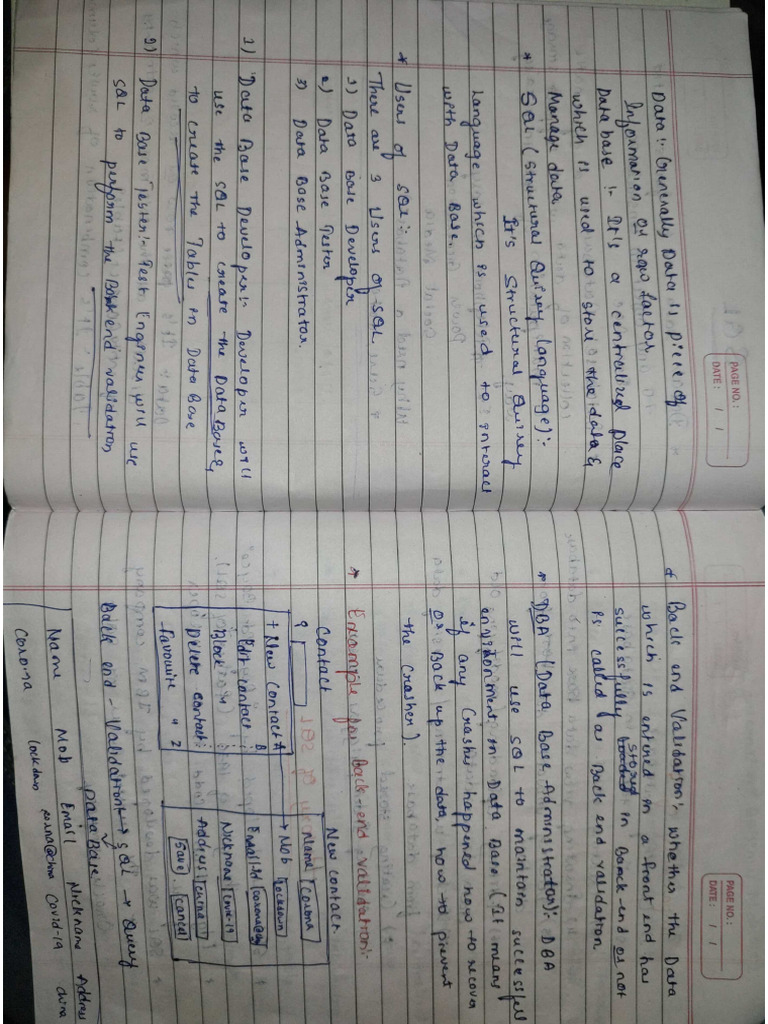 PAGE NO.:
DATE: / /
Data :- Generally Data is piece of
Information or raw factor.
Data base :- It's a centralized place
which is used to store the data &
Manage data.
* SQL (Structural Quirey language) :-
It's Structural Quirey
Language which is used to interact
with Data Base.
* Users of SQL :-
There are 3 Users of SQL
1) Data Base Developer
2) Data Base Tester
3) Data Base Administrator.
1) Data Base Developer :- Developer will
use the SQL to create the Data Base &
to create the Tables in Data Base
2) Data Base Tester :- Test Engineer will use
SQL to perform the Back end validation
PAGE NO.:
DATE: / /
* Back end Validation :- whether the Data
which is entered in a front end has
stored
successfully in Back-end or not
is called as Back end validation.
* DBA (Data Base Administrator) :- DBA
will use SQL to maintain successfull
environment in Data Base (It means
if any Crashes happened how to recover
or Back up the data, how to prevent
the crashes).
* Example for Back-end validation :-
Contact
+ New Contact A
Edit contact B
Block
Delete contact
Favourite 2
New contact
Name Corona
Mob lockdown
Email-Id
Nickname
Address china
Save Cancel
Back end - Validation → SQL → Query
Data Base
Name Mob Email Nickname Address
Corona lockdown corona@china Covid-19 china